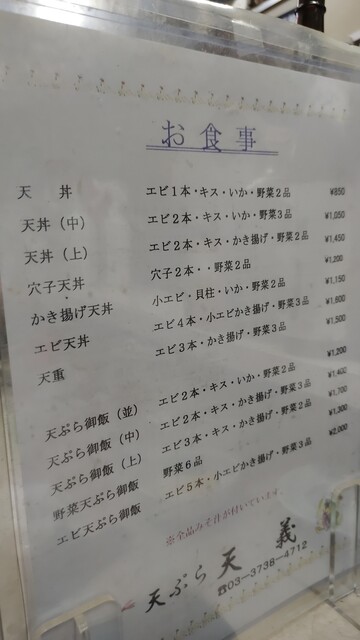 お食事
天 丼 エビ1本・キス・いか・野菜2品 ¥850
天丼（中） エビ2本・キス・いか・野菜3品 ¥1,050
天丼（上） エビ2本・キス・かき揚げ・野菜2品 ¥1,450
穴子天丼 穴子2本・・野菜2品 ¥1,200
かき揚げ天丼 小エビ・貝柱・いか・野菜2品 ¥1,150
エビ天丼 エビ4本・小エビかき揚げ・野菜3品 ¥1,600
天重 エビ3本・かき揚げ・野菜3品 ¥1,500
天ぷら御飯（並） エビ2本・キス・いか・野菜2品 ¥1,200
天ぷら御飯（中） エビ2本・キス・かき揚げ・野菜3品 ¥1,400
天ぷら御飯（上） エビ3本・キス・かき揚げ・野菜2品 ¥1,700
野菜天ぷら御飯 野菜6品 ¥1,300
エビ天ぷら御飯 エビ5本・小エビかき揚げ・野菜3品 ¥2,000
※全品みそ汁が付いています。
天ぷら 天 義
☎03-3738-4712